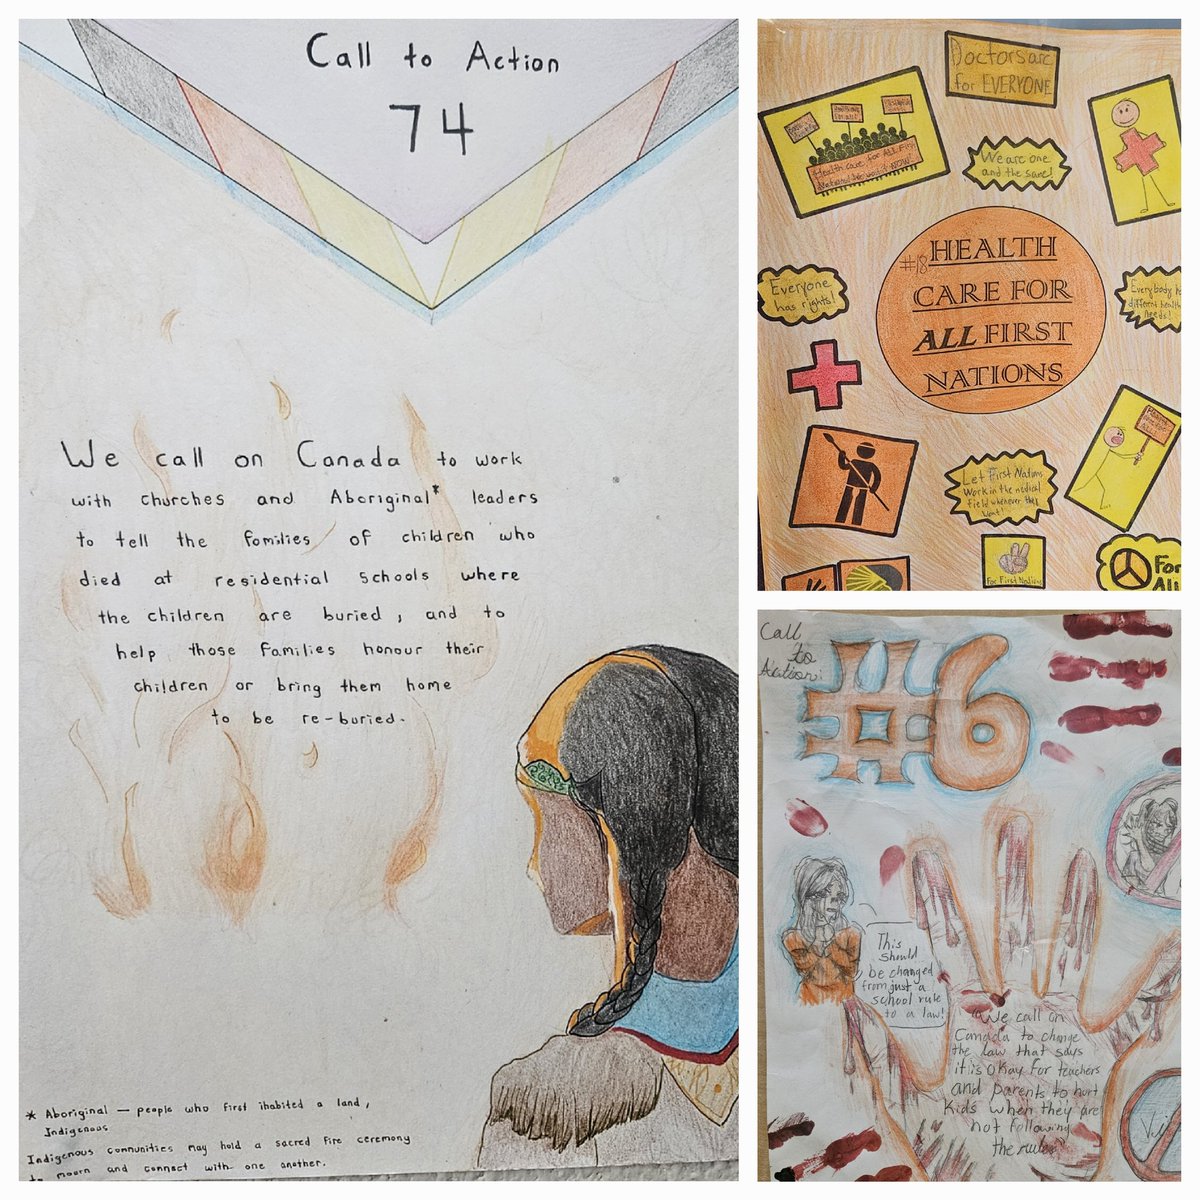 Call to Action
74
We call on Canada to work
with churches and Aboriginal* leaders
to tell the families of children who
died at residential schools where
the children are buried, and to
help those families honour their
children or bring them home
to be re-buried.
* Aboriginal — people who first ihabited a land,
Indigenous
Indigenous communities may hold a sacred fire ceremony
to mourn and connect with one another.
Doctors are
for EVERYONE
Health care for ALL First
Nations! We want it NOW!
We are one
and the same!
#18 HEALTH
CARE FOR
ALL FIRST
NATIONS
Everyone
has rights!
Everybody
different health
needs!
Let First Nations
Work in the medical
field whenever they
want!
For First Nations
For
All
Call
to
Action:
#6
This
should
be changed
from just a
school rule
to a law!
"We call on
Canada to change
the law that says
it is okay for teachers
and parents to hurt
kids when they are
not following
the rules"